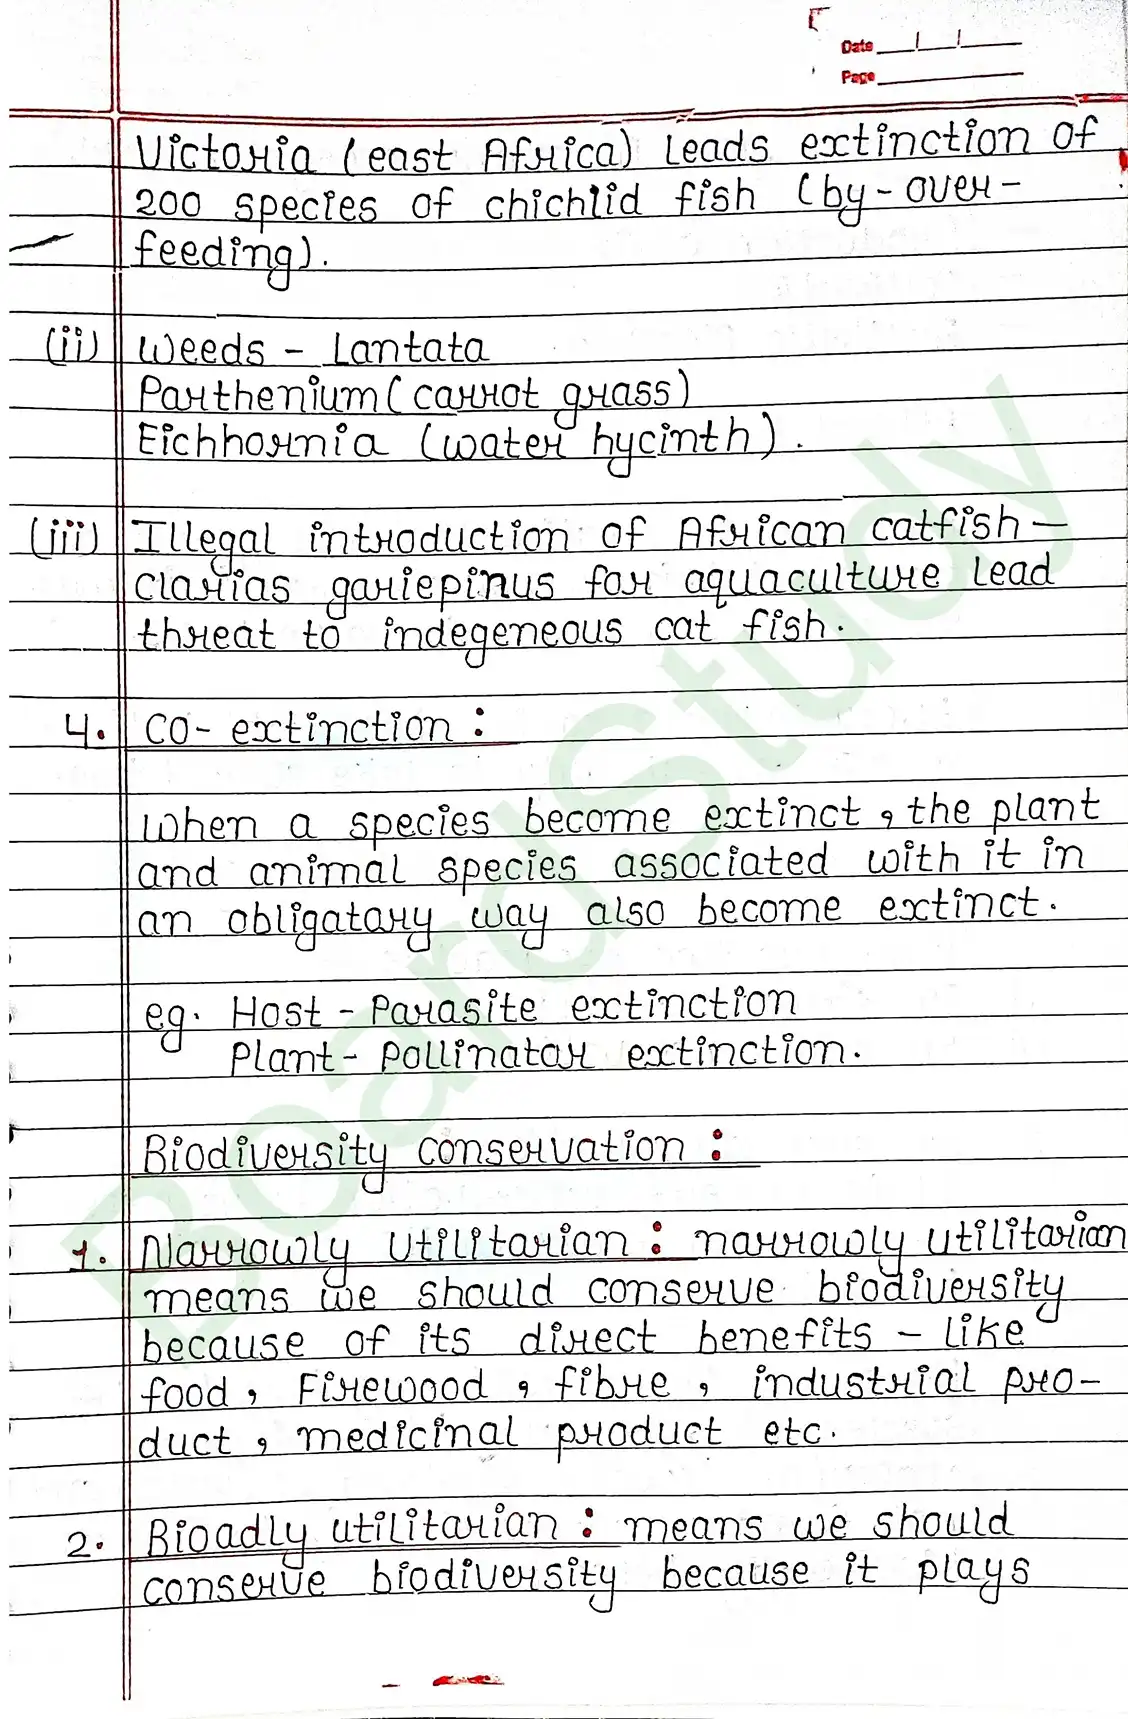 Date
Page
Victoria (east Africa) Leads extinction of
200 species of chichlid fish (by-over-
feeding).
(ii) Weeds - Lantata
Parthenium (carrot grass)
Eichhornia (water hycinth).
(iii) Illegal introduction of African catfish—
clarias gariepinus for aquaculture lead
threat to indegeneous cat fish.
4. CO- extinction :
When a species become extinct, the plant
and animal species associated with it in
an obligatory way also become extinct.
eg. Host - Parasite extinction
Plant - Pollinator extinction.
Biodiversity conservation :
1. Narrowly utilitarian : narrowly utilitarian
means we should conserve biodiversity
because of its direct benefits - like
food, Firewood, fibre, industrial pro-
duct, medicinal product etc.
2. Bioadly utilitarian : means we should
conserve biodiversity because it plays
BoardStudy